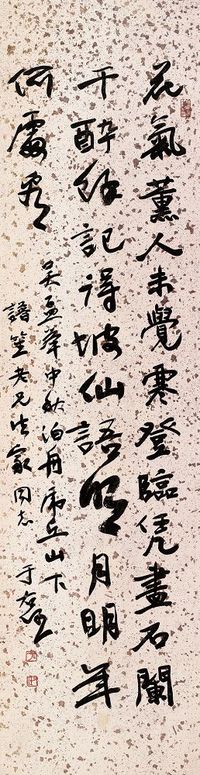 花氣薰人未覺寒登臨凭盡石闌
干醉餘記得坡仙語明月明年
何處看
吳孟舉中秋泊舟虎丘山下
譜笙老兄法家同志 于右任